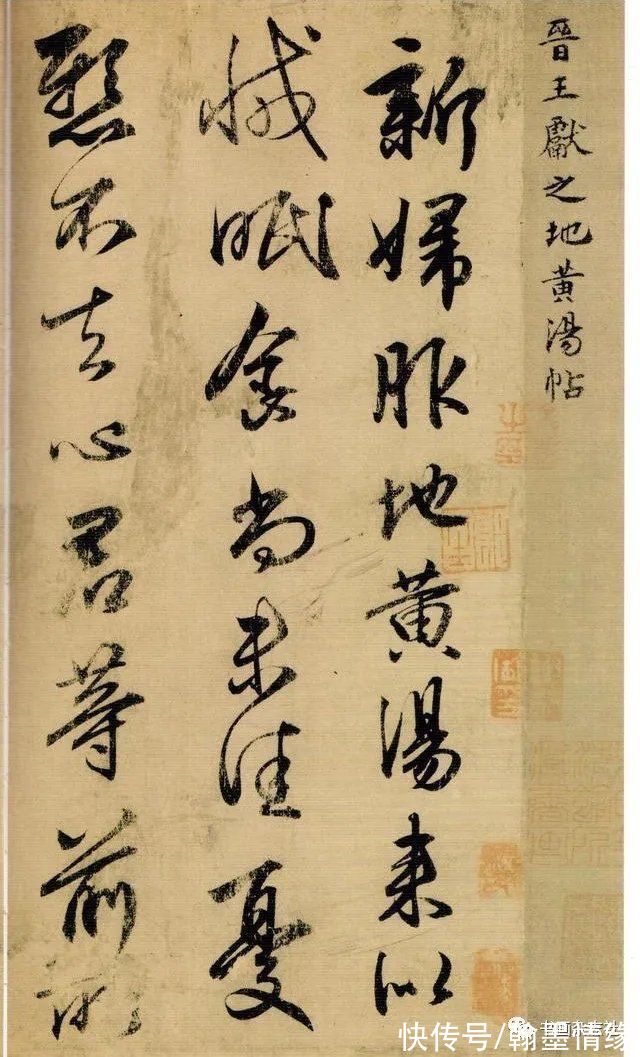 晉王獻之地黃湯帖
新婦服地黃湯來似
減眠食尚未佳憂
懸不去心君等前所
快传号/翰墨情缘